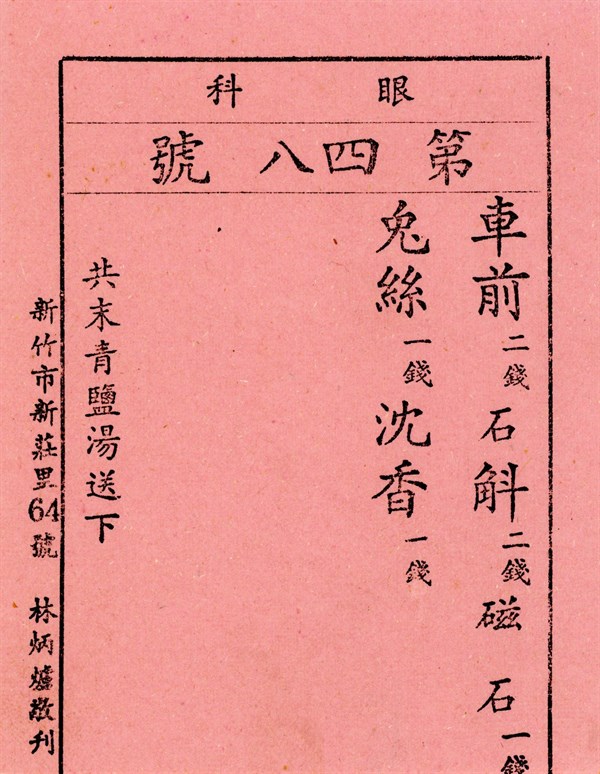 眼科
第四八號
車前二錢石斛二錢磁石一錢
兔絲一錢沈香一錢
共末青鹽湯送下
新竹市新莊里64號 林炳爐敬刊